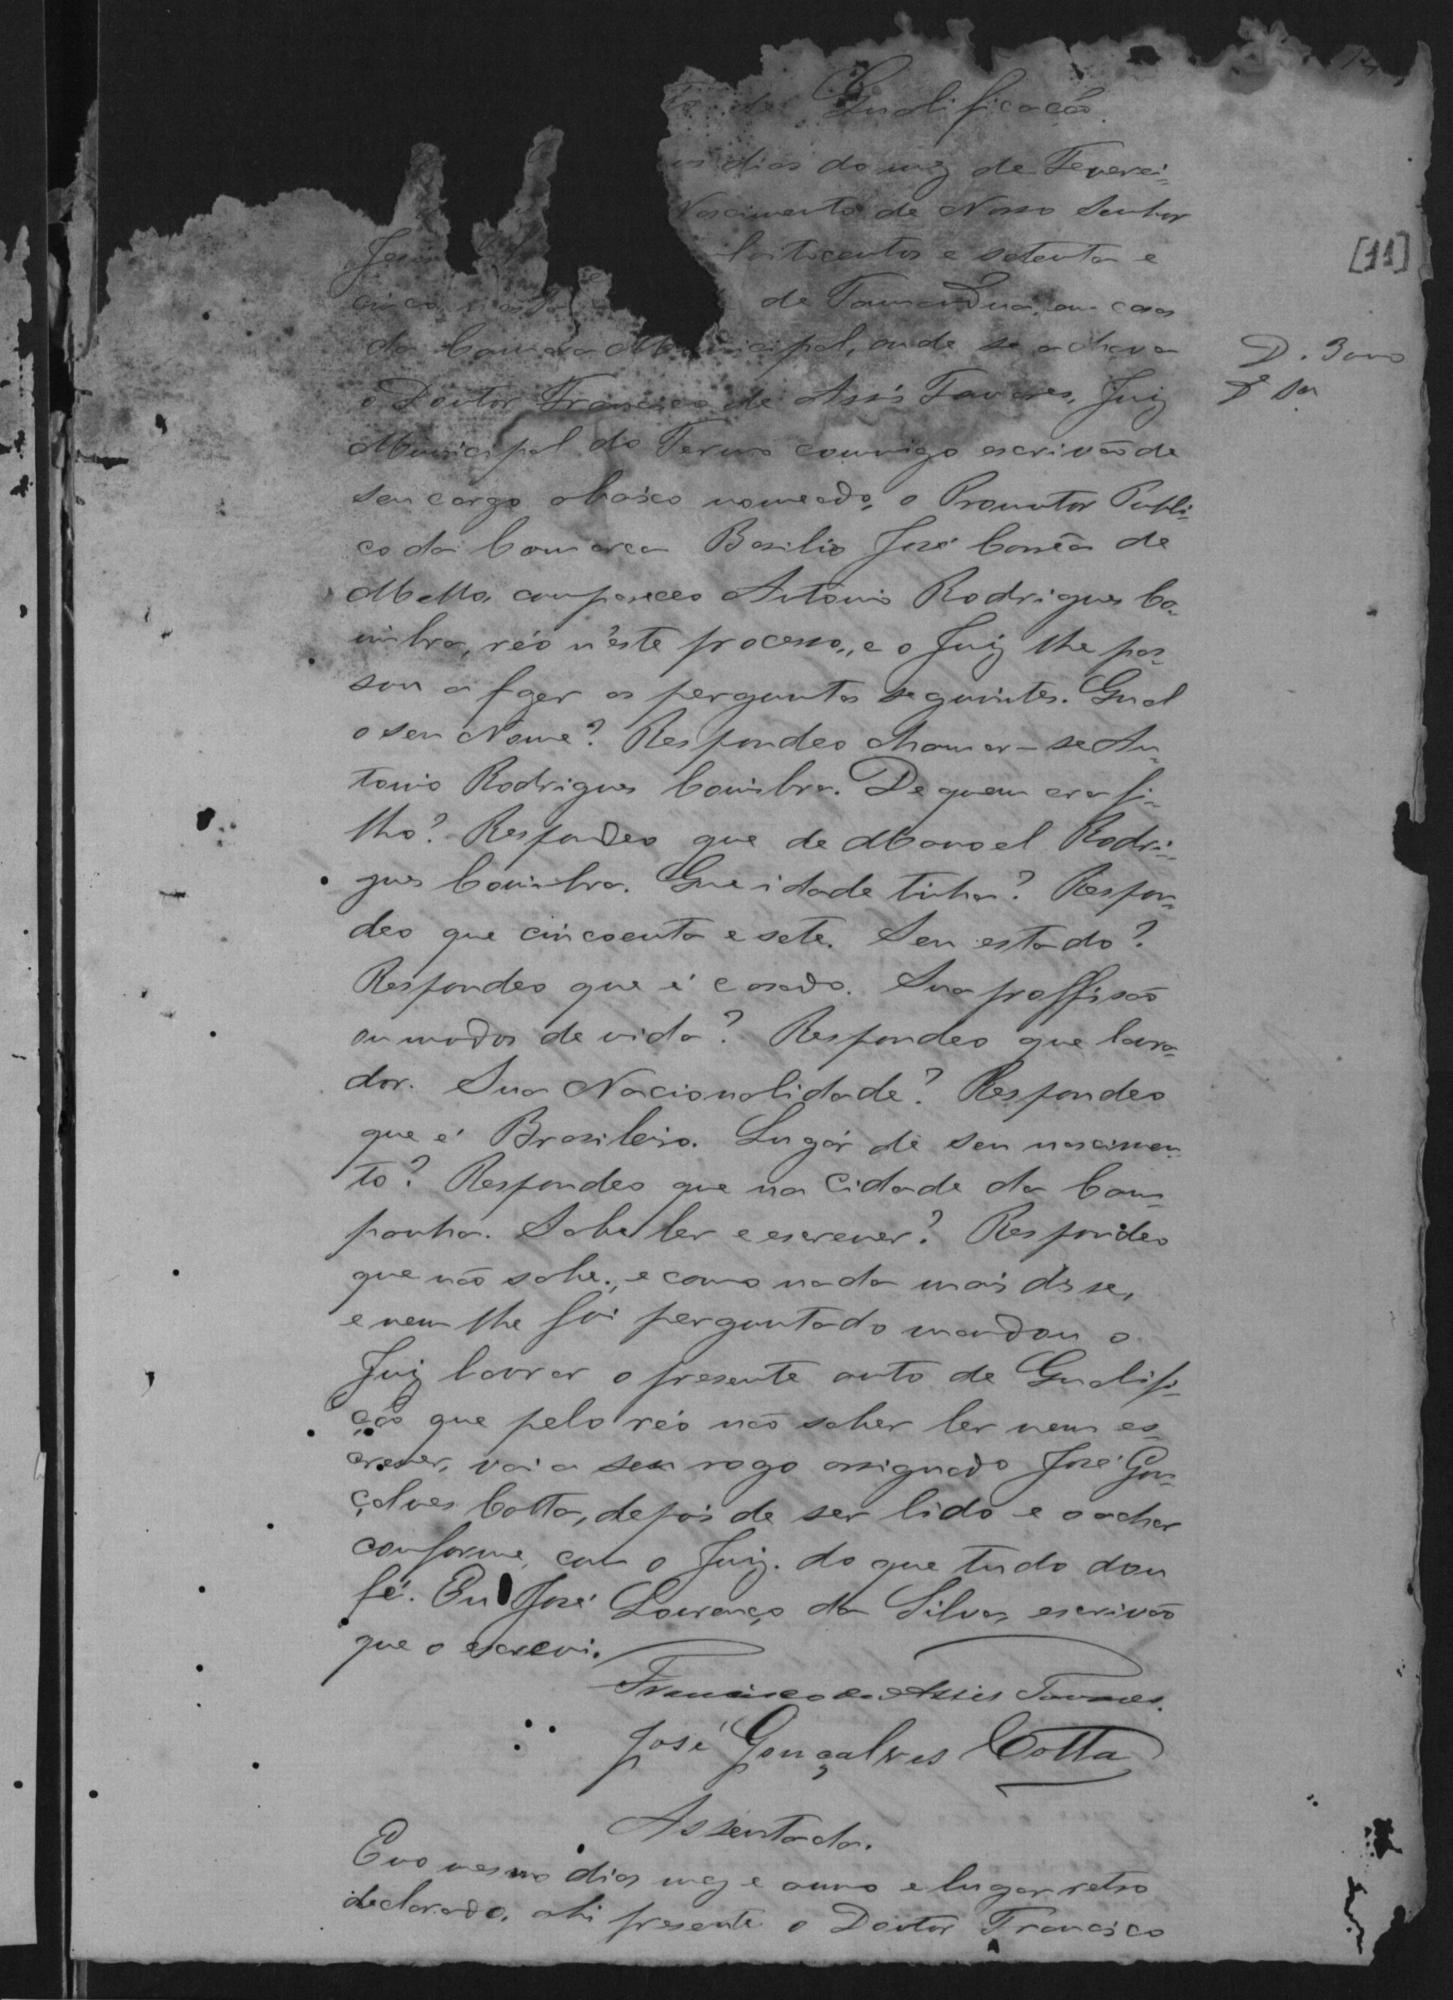 to de Qualificação.
dias do mez de Feverei-
Nascimento de Nosso Senhor
Jesus oitocentos e setenta e
cinco, de Tamanduá, em casa
da Camara Municipal, onde se achava
o Doutor Francisco de Assis Tavares, Juiz
Municipal do Termo commigo escrivão de
seu cargo abaixo nomeado, o Promotor Publi-
co da Comarca Basilio José Corrêa de
Mello, compareceo Antonio Rodrigues Co-
imbra, réo n'este processo, e o Juiz lhe pas-
sou a fazer as perguntas seguintes. Qual
o seu Nome? Respondeo chamar-se An-
tonio Rodrigues Coimbra. De quem era fi-
lho? Respondeo que de Manoel Rodri-
gues Coimbra. Que idade tinha? Respon-
deo que cincoenta e sete. Seu estado?
Respondeo que é casado. Sua proffisão
ou modos de vida? Respondeo que lavra-
dor. Sua Nacionalidade? Respondeo
que é Brasileiro. Lugár de seu nascimen-
to? Respondeo que na Cidade da Cam-
panha. Sabe ler e escrever? Respondeo
que não sabe., e como nada mais disse,
e nem lhe foi perguntado mandou o
Juiz lavrar o presente auto de Qualifi-
ção que pelo réo não saber ler nem es-
crever, vai a seu rogo assignado José Gon-
çalves Cotta, depois de ser lido e o achar
conforme, com o Juiz. do que tudo dou
fé. Eu José Lourenço da Silva, escrivão
que o escrevi.
Francisco de Assis Tavares.
José Gonçalves Cotta
Assentada.
E no mesmo dia, mez e anno e lugar retro
declarado, ahi presente o Doutor Francisco
[11]